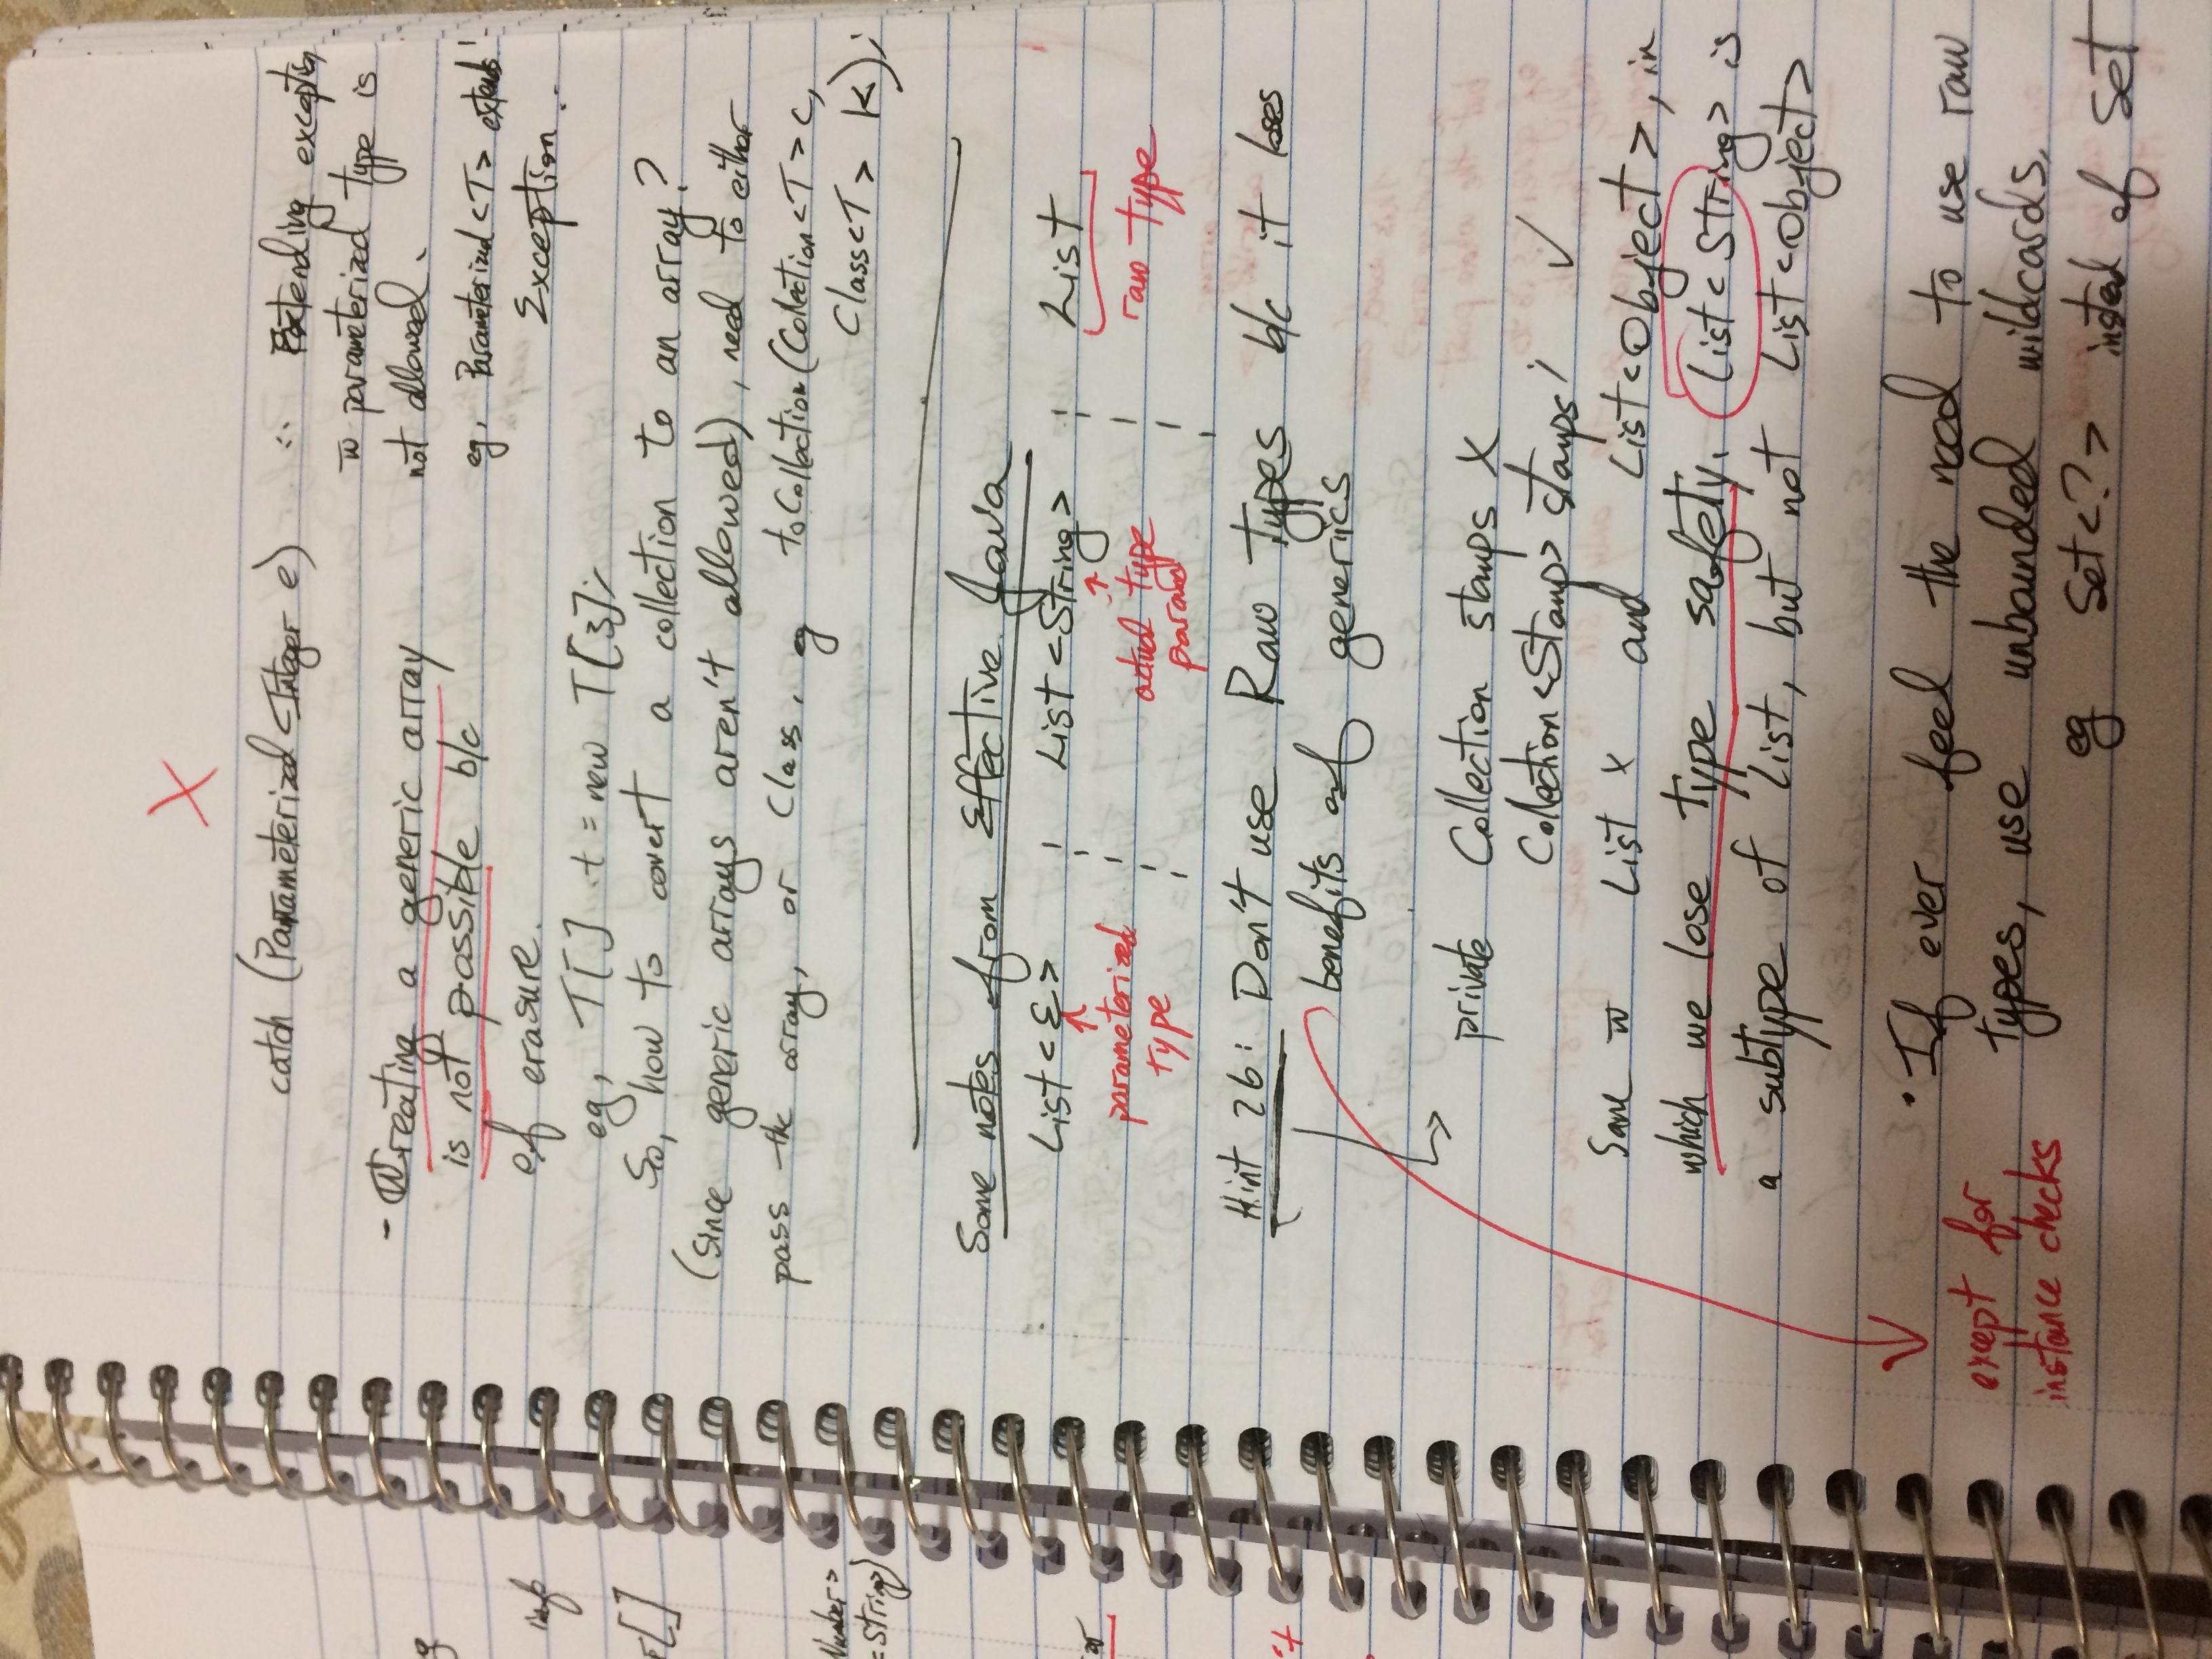 X
catch (Parameterized<Integer e)
∵ Extending exception
w parameterized type is
not allowed.
eg, Parameterized<T> extends
Exception.
- Creating a generic array
is not possible b/c
of erasure.
eg, T[] t = new T[3];
So, how to covert a collection to an array?
(since generic arrays aren't allowed), need to either
pass the array, or Class, eg toCollection(Collection<T> c,
Class<T> K);
Some notes from Effective Java
List<E> List<String> List
parameterized type
actual type param
raw type
Hint 26: Don't use Raw Types b/c it loses
benefits of generics
private Collection stamps X
Collection<Stamp> stamps; ✓
Same w List x and List<Object>, in
which we lose type safety. List<String> is
a subtype of List, but not List<Object>
• If ever feel the need to use raw
types, use unbounded wildcards.
eg Set<?> instead of Set
except for
instance checks
info
[]
Number>
<String>)